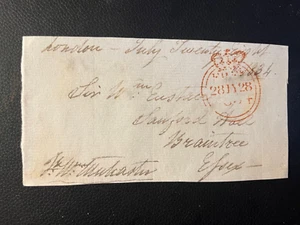 London - July Twenty eight
1834
Sir Wm Eustace
Sanford Hall
Braintree
Essex
28 JY 28